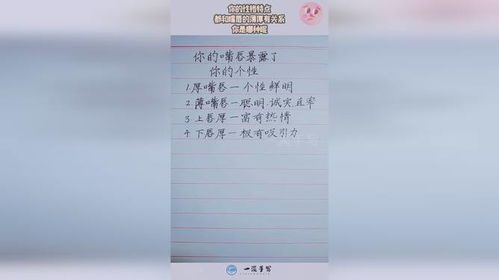 你的性格特点
都和嘴唇的薄厚有关系
你是哪种呢
你的嘴唇暴露了
你的个性
1.厚嘴唇一个性鲜明
2.薄嘴唇一聪明.诚实直率
3.上唇厚一富有热情
4.下唇厚一极有吸引力